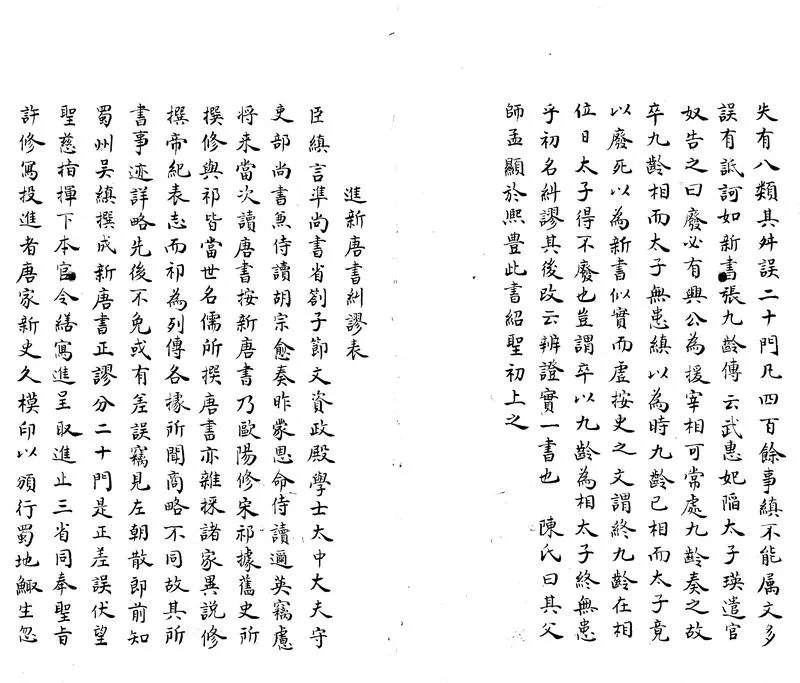 失有八類其舛誤二十門凡四百餘事縝不能属文多
誤有詆訶如新書張九齡傳云武惠妃陷太子瑛遣官
奴告之曰廢必有興公為援宰相可常處九齡奏之故
卒九齡相而太子無患縝以為時九齡已相而太子竟
以廢死以為新書似實而虛按史之文謂終九齡在相
位日太子得不廢也豈謂卒以九齡為相太子終無患
乎初名糾謬其後改云辨證實一書也 陳氏曰其父
師孟顯於熙豊此書紹聖初上之
進新唐書糾謬表
臣縝言準尚書省劄子節文資政殿學士太中大夫守
吏部尚書兼侍讀胡宗愈奏昨蒙恩命侍讀邇英竊慮
将来當次讀唐書按新唐書乃歐陽修宋祁據舊史所
撰修與祁皆當世名儒所撰唐書亦雜採諸家異説修
撰帝紀表志而祁為列傳各據所聞商略不同故其所
書事迹詳略先後不免或有差誤竊見左朝散郎前知
蜀州吴縝撰成新唐書正謬分二十門是正差誤伏望
聖慈指揮下本官令繕寫進呈取進止三省同奉聖旨
許修寫投進者唐家新史久模印以頒行蜀地鯫生忽